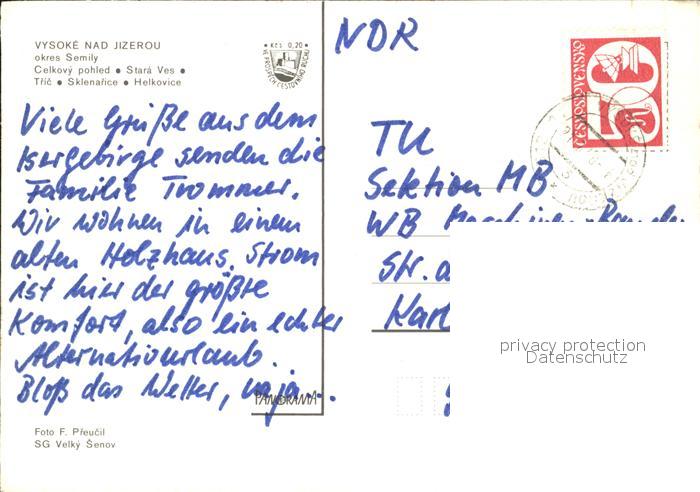 VYSOKÉ NAD JIZEROU
okres Semily
Celkový pohled • Stará Ves •
Tříč • Sklenařice • Helkovice
• Kčs 0,20 •
VE PROSPĚCH CESTOVNÍHO RUCHU
Viele Grüße aus dem
Isergebirge senden die
Familie Trommer.
Wir wohnen in einem
alten Holzhaus. Strom
ist hier der größte
Komfort, also ein echter
Alternativurlaub.
Bloß das Wetter, naja...
PANORAMA
Foto F. Přeučil
SG Velký Šenov
NDR
ČESKOSLOVENSKO
50
TU
Sektion MB
WB
Str.
privacy protection
Datenschutz